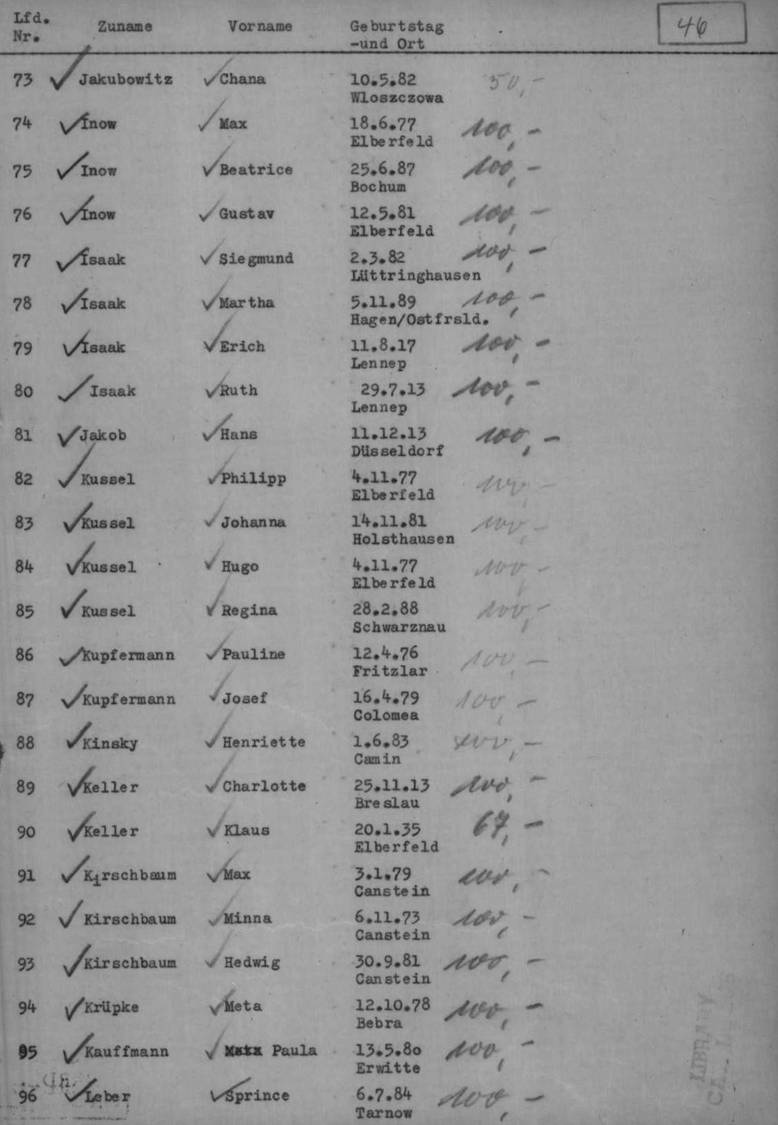 Lfd. Nr. Zuname Vorname Geburtstag -und Ort 46
73 Jakubowitz Chana 10.5.82 50,-
Wloszczowa
74 Inow Max 18.6.77 100,-
Elberfeld
75 Inow Beatrice 25.6.87 100,-
Bochum
76 Inow Gustav 12.5.81 100,-
Elberfeld
77 Isaak Siegmund 2.3.82 100,-
Lüttringhausen
78 Isaak Martha 5.11.89 100,-
Hagen/Ostfrsld.
79 Isaak Erich 11.8.17 100,-
Lennep
80 Isaak Ruth 29.7.13 100,-
Lennep
81 Jakob Hans 11.12.13 100,-
Düsseldorf
82 Kussel Philipp 4.11.77 100,-
Elberfeld
83 Kussel Johanna 14.11.81 100,-
Holsthausen
84 Kussel Hugo 4.11.77 100,-
Elberfeld
85 Kussel Regina 28.2.88 100,-
Schwarznau
86 Kupfermann Pauline 12.4.76 100,-
Fritzlar
87 Kupfermann Josef 16.4.79 100,-
Colomea
88 Kinsky Henriette 1.6.83 100,-
Camin
89 Keller Charlotte 25.11.13 100,-
Breslau
90 Keller Klaus 20.1.35 67,-
Elberfeld
91 Kirschbaum Max 3.1.79 100,-
Canstein
92 Kirschbaum Minna 6.11.73 100,-
Canstein
93 Kirschbaum Hedwig 30.9.81 100,-
Canstein
94 Krüpke Meta 12.10.78 100,-
Bebra
95 Kauffmann Paula 13.5.80 100,-
Erwitte
96 Leber Sprince 6.7.84 100,-
Tarnow
LIBRARY